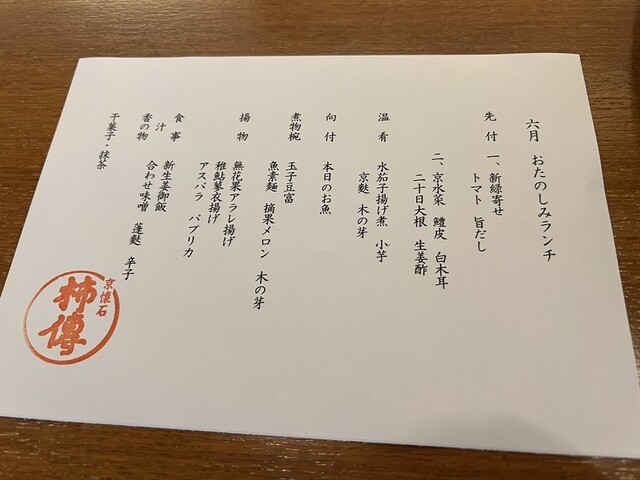 六月 おたのしみランチ
先付 一、新緑寄せ
トマト 旨だし
二、京水菜 鱧皮 白木耳
二十日大根 生姜酢
温肴 水茄子揚げ煮 小芋
京麩 木の芽
向付 本日のお魚
煮物椀 玉子豆富
魚素麺 摘果メロン 木の芽
揚物 無花果アラレ揚げ
稚鮎蓼衣揚げ
アスパラ パプリカ
食事 新生姜御飯
汁 合わせ味噌 蓬麩 辛子
香の物
干菓子・抹茶
京懐石
柿傳